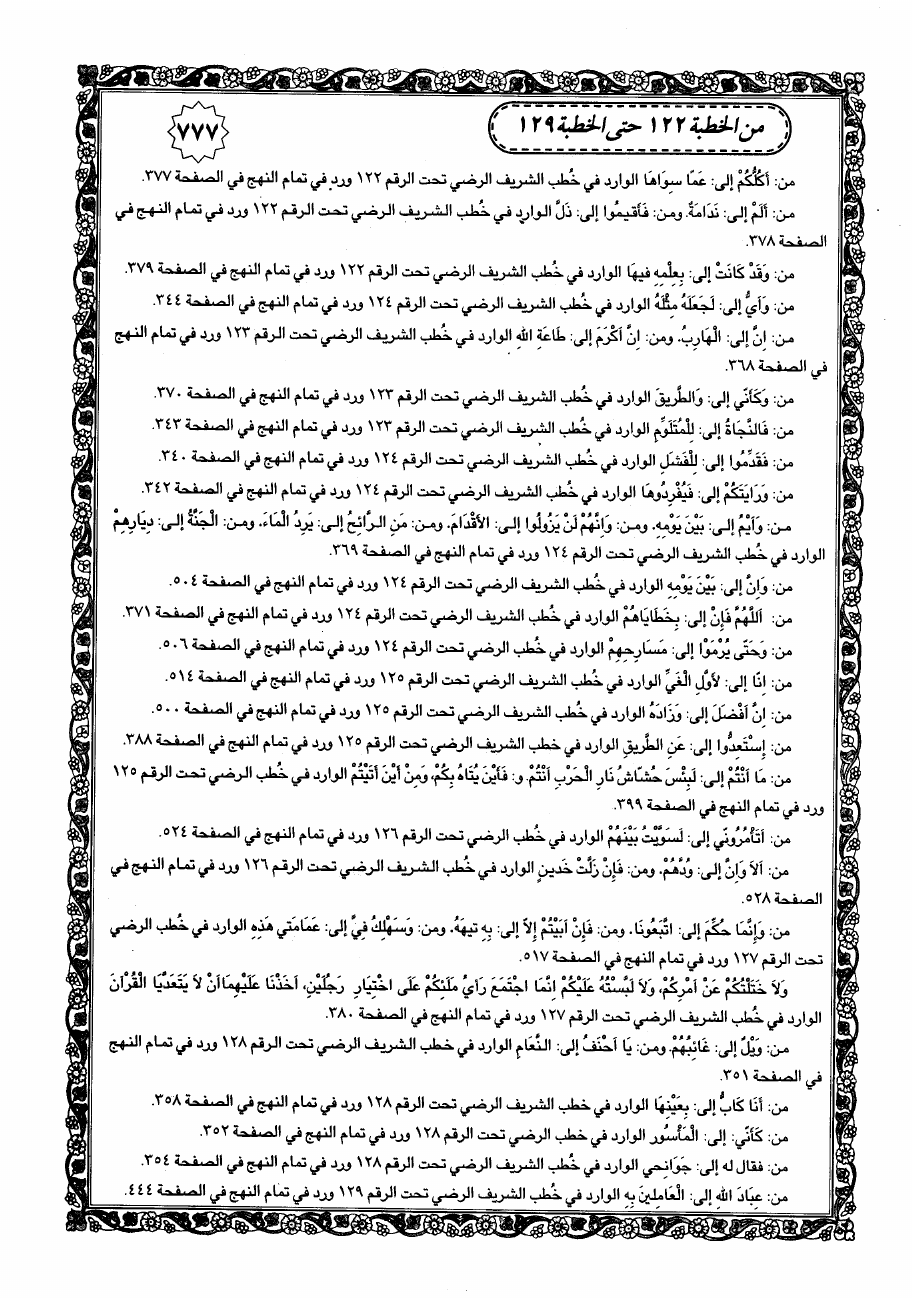 من الخطبة ١٢٢ حتى الخطبة ١٢٩
٧٧٧
من: أكُلُّكُمْ إلى: عَمَّا سِوَاهَا الوارد في خُطب الشريف الرضي تحت الرقم ١٢٢ ورد في تمام النهج في الصفحة ٣٧٧.
من: ألَمْ إلى: نَدَامَةٌ. ومن: فَأقيمُوا إلى: ذَلَّ الوارد في خُطب الشريف الرضي تحت الرقم ١٢٢ ورد في تمام النهج في
الصفحة ٣٧٨.
من: وَقَدْ كَانَتْ إلى: بِعِلْمِهِ فيهَا الوارد في خُطب الشريف الرضي تحت الرقم ١٢٢ ورد في تمام النهج في الصفحة ٣٧٩.
من: وَأيُّ إلى: لَجَعَلَهُ مِثْلَهُ الوارد في خُطب الشريف الرضي تحت الرقم ١٢٤ ورد في تمام النهج في الصفحة ٣٤٤.
من: إنَّ إلى: الْهَارِبُ. ومن: إنَّ أكْرَمَ إلى: طَاعَةِ اللهِ الوارد في خُطب الشريف الرضي تحت الرقم ١٢٣ ورد في تمام النهج
في الصفحة ٣٦٨.
من: وَكَأنّي إلى: وَالطَّريقَ الوارد في خُطب الشريف الرضي تحت الرقم ١٢٣ ورد في تمام النهج في الصفحة ٣٧٠.
من: فَالنَّجَاةُ إلى: لِلْمُتَلَوِّمِ الوارد في خُطب الشريف الرضي تحت الرقم ١٢٣ ورد في تمام النهج في الصفحة ٣٤٣.
من: فَقَدِّمُوا إلى: لِلْفَشَلِ الوارد في خُطب الشريف الرضي تحت الرقم ١٢٤ ورد في تمام النهج في الصفحة ٣٤٠.
من: وَرَايَتَكُمْ إلى: فَيُفْرِدُوهَا الوارد في خُطب الشريف الرضي تحت الرقم ١٢٤ ورد في تمام النهج في الصفحة ٣٤٢.
من: وَأيْمُ إلى: بَيْنَ يَوْمِهِ. ومن: وَإنَّهُمْ لَنْ يَزُولُوا إلى: الأقْدَامَ. ومن: مَنِ الرَّائِحُ إلى: يَرِدُ الْمَاءَ. ومن: الْجَنَّةُ إلى: دِيَارِهِمْ
الوارد في خُطب الشريف الرضي تحت الرقم ١٢٤ ورد في تمام النهج في الصفحة ٣٦٩.
من: وَإنَّ إلى: بَيْنَ يَوْمِهِ الوارد في خُطب الشريف الرضي تحت الرقم ١٢٤ ورد في تمام النهج في الصفحة ٥٠٤.
من: اَللَّهُمَّ فَإنْ إلى: بِخَطَايَاهُمْ الوارد في خُطب الشريف الرضي تحت الرقم ١٢٤ ورد في تمام النهج في الصفحة ٣٧١.
من: وَحَتَّى يُرْمَوْا إلى: مَسَارِحِهِمْ الوارد في خُطب الشريف الرضي تحت الرقم ١٢٤ ورد في تمام النهج في الصفحة ٥٠٦.
من: إنَّا إلى: لأوَّلِ الْغَيِّ الوارد في خُطب الشريف الرضي تحت الرقم ١٢٥ ورد في تمام النهج في الصفحة ٥١٤.
من: إنَّ أفْضَلَ إلى: وَزَادَهُ الوارد في خُطب الشريف الرضي تحت الرقم ١٢٥ ورد في تمام النهج في الصفحة ٥٠٠.
من: إسْتَعِدُّوا إلى: عَنِ الطَّريقِ الوارد في خطب الشريف الرضي تحت الرقم ١٢٥ ورد في تمام النهج في الصفحة ٣٨٨.
من: مَا أنْتُمْ إلى: لَبِئْسَ حُشَّاشُ نَارِ الْحَرْبِ أنْتُمْ. و: فَأيْنَ يُتَاهُ بِكُمْ، وَمِنْ أيْنَ أتَيْتُمْ الوارد في خُطب الرضي تحت الرقم ١٢٥
ورد في تمام النهج في الصفحة ٣٩٩.
من: أتَأمُرُونّي إلى: لَسَوَّيْتُ بَيْنَهُمْ الوارد في خُطب الشريف الرضي تحت الرقم ١٢٦ ورد في تمام النهج في الصفحة ٥٢٤.
من: ألاَ وَإنَّ إلى: وُدَّهُمْ. ومن: فَإنْ زَلَّتْ خَدينٍ الوارد في خُطب الشريف الرضي تحت الرقم ١٢٦ ورد في تمام النهج في
الصفحة ٥٢٨.
من: وَإنَّمَا حُكِّمَ إلى: اتَّبَعُونَا. ومن: فَإنْ أبَيْتُمْ إلاَّ إلى: بِهِ تيهَهُ. ومن: وَسَهْلِكُ فِيَّ إلى: عَمَامَتي هَذِهِ الوارد في خُطب الرضي
تحت الرقم ١٢٧ ورد في تمام النهج في الصفحة ٥١٧.
وَلاَ خَتَلْتُكُمْ عَنْ أمْرِكُمْ، وَلاَ لَبَّسْتُهُ عَلَيْكُمْ إنَّمَا اجْتَمَعَ رَأيُ مَلَئِكُمْ عَلَى اخْتِيَارِ رَجُلَيْنِ، أخَذْنَا عَلَيْهِمَا أنْ لاَ يَتَعَدَّيَا الْقُرْآنَ
الوارد في خُطب الشريف الرضي تحت الرقم ١٢٧ ورد في تمام النهج في الصفحة ٣٨٠.
من: وَيْلٌ إلى: غَائِبُهُمْ. ومن: يَا أحْنَفُ إلى: النَّعَامِ الوارد في خطب الشريف الرضي تحت الرقم ١٢٨ ورد في تمام النهج
في الصفحة ٣٥١.
من: أنَا كَابُّ إلى: بِعَيْنِهَا الوارد في خطب الشريف الرضي تحت الرقم ١٢٨ ورد في تمام النهج في الصفحة ٣٥٨.
من: كَأنّي: إلى: الْمَأسُور الوارد في خطب الرضي تحت الرقم ١٢٨ ورد في تمام النهج في الصفحة ٣٥٢.
من: فقال له إلى: جَوَانِحي الوارد في خُطب الشريف الرضي تحت الرقم ١٢٨ ورد في تمام النهج في الصفحة ٣٥٤.
من: عِبَادَ اللهِ إلى: الْعَامِلينَ بِهِ الوارد في خُطب الشريف الرضي تحت الرقم ١٢٩ ورد في تمام النهج في الصفحة ٤٤٤.